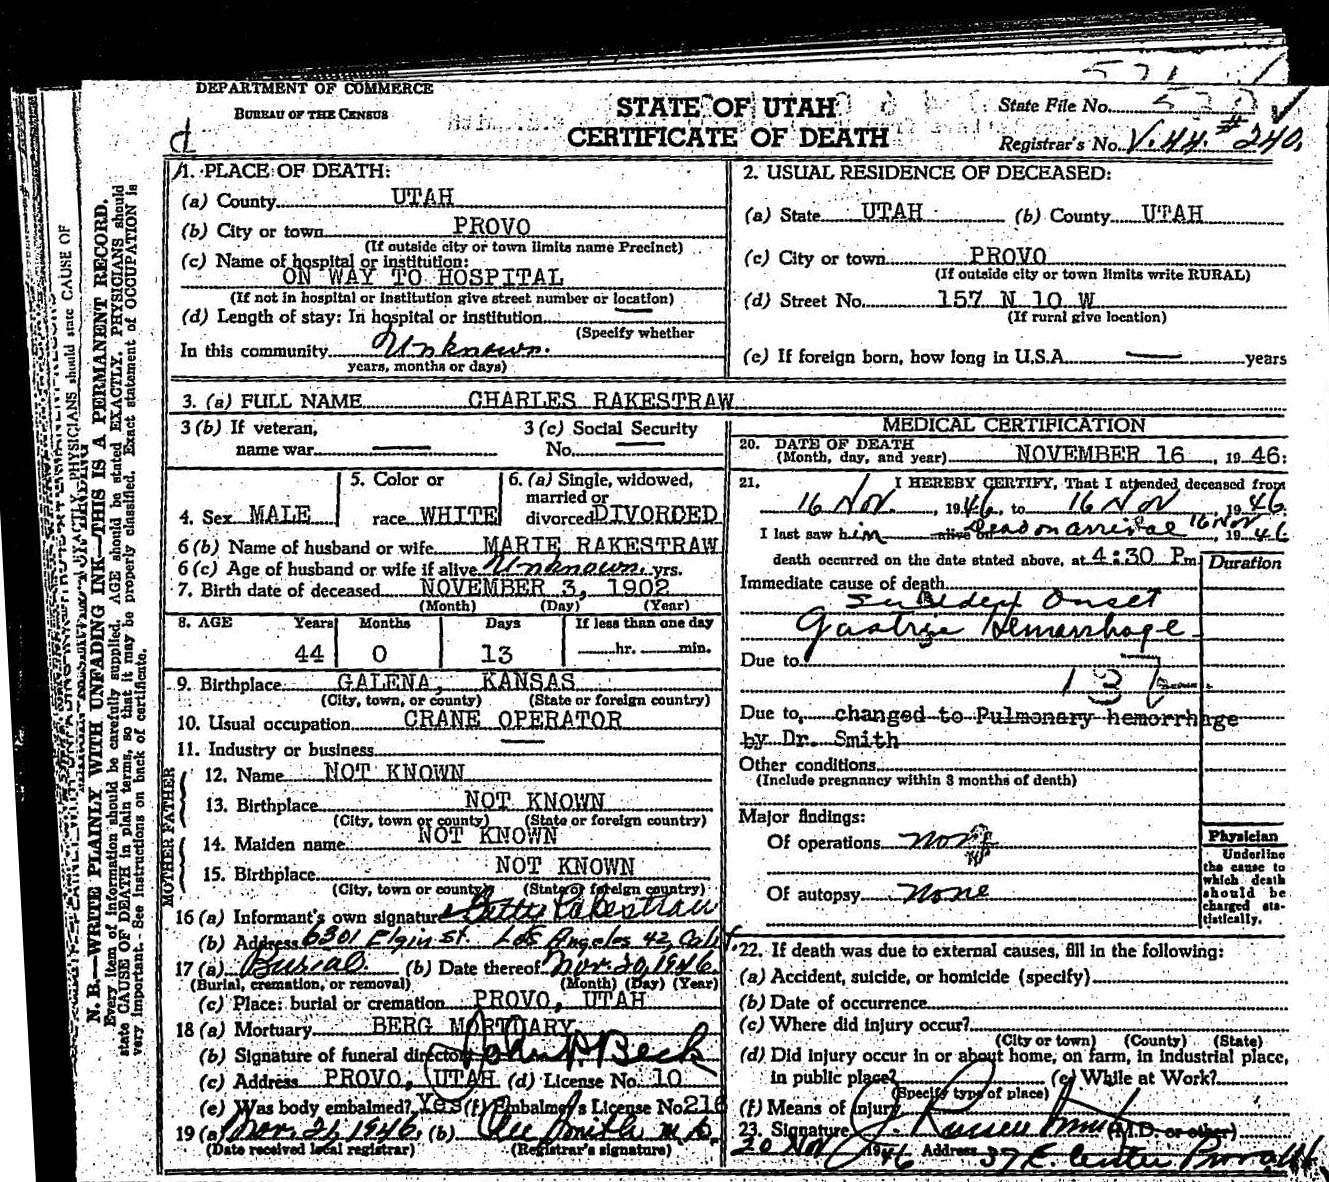 DEPARTMENT OF COMMERCE
BUREAU OF THE CENSUS
STATE OF UTAH
CERTIFICATE OF DEATH
State File No.
Registrar's No. V.44. #240.
N. B.—WRITE PLAINLY WITH UNFADING INK—THIS IS A PERMANENT RECORD.
Every item of information should be carefully supplied. AGE should be stated EXACTLY. PHYSICIANS should
state CAUSE OF DEATH in plain terms, so that it may be properly classified. Exact statement of OCCUPATION is
very important. See instructions on back of certificate.
1. PLACE OF DEATH:
(a) County UTAH
(b) City or town PROVO
(If outside city or town limits name Precinct)
(c) Name of hospital or institution:
ON WAY TO HOSPITAL
(If not in hospital or institution give street number or location)
(d) Length of stay: In hospital or institution —
(Specify whether
In this community Unknown.
years, months or days)
2. USUAL RESIDENCE OF DECEASED:
(a) State UTAH (b) County UTAH
(c) City or town PROVO
(If outside city or town limits write RURAL)
(d) Street No. 157 N 10 W
(If rural give location)
(e) If foreign born, how long in U.S.A. — years
3. (a) FULL NAME CHARLES RAKESTRAW
3 (b) If veteran,
name war —
3 (c) Social Security
No. —
4. Sex MALE
5. Color or
race WHITE
6. (a) Single, widowed,
married or
divorced DIVORDED
6 (b) Name of husband or wife MARIE RAKESTRAW
6 (c) Age of husband or wife if alive Unknown yrs.
7. Birth date of deceased NOVEMBER 3, 1902
(Month) (Day) (Year)
8. AGE Years Months Days If less than one day
44 0 13 hr. min.
9. Birthplace GALENA, KANSAS
(City, town, or county) (State or foreign country)
10. Usual occupation CRANE OPERATOR
11. Industry or business —
FATHER
12. Name NOT KNOWN
13. Birthplace NOT KNOWN
(City, town or county) (State or foreign country)
MOTHER
14. Maiden name NOT KNOWN
15. Birthplace NOT KNOWN
(City, town or county) (State or foreign country)
16 (a) Informant's own signature Betty Rakestraw
(b) Address 6301 Elgin st. Los Angeles 42, Calif.
17 (a) Burial (b) Date thereof Nov. 20, 1946.
(Burial, cremation, or removal) (Month) (Day) (Year)
(c) Place: burial or cremation PROVO, UTAH
18 (a) Mortuary BERG MORTUARY
(b) Signature of funeral director
(c) Address PROVO, UTAH (d) License No. 10
(e) Was body embalmed? Yes (f) Embalmer's License No. 216
19 (a) Nov. 21, 1946. (b) Smith M.D.
(Date received local registrar) (Registrar's signature)
MEDICAL CERTIFICATION
20. DATE OF DEATH
(Month, day, and year) NOVEMBER 16, 1946:
21. I HEREBY CERTIFY, That I attended deceased from
16 Nov., 1946, to 16 Nov, 1946.
I last saw him alive on Dead on arrival 16 Nov 1946
death occurred on the date stated above, at 4:30 Pm
Duration
Immediate cause of death
Sudden Onset
Gastric Hemorrhage
Due to
Due to, changed to Pulmonary hemorrhage
by Dr. Smith
Other conditions
(Include pregnancy within 3 months of death)
Major findings:
Of operations none
Of autopsy none
Physician
Underline
the cause to
which death
should be
charged sta-
tistically.
22. If death was due to external causes, fill in the following:
(a) Accident, suicide, or homicide (specify)
(b) Date of occurrence
(c) Where did injury occur?
(City or town) (County) (State)
(d) Did injury occur in or about home, on farm, in industrial place,
in public place? (e) While at Work?
(Specify type of place)
(f) Means of injury
23. Signature J. Russell Smith (M.D. or other)
20 Nov 1946 Address 37 E. Center Provo Ut